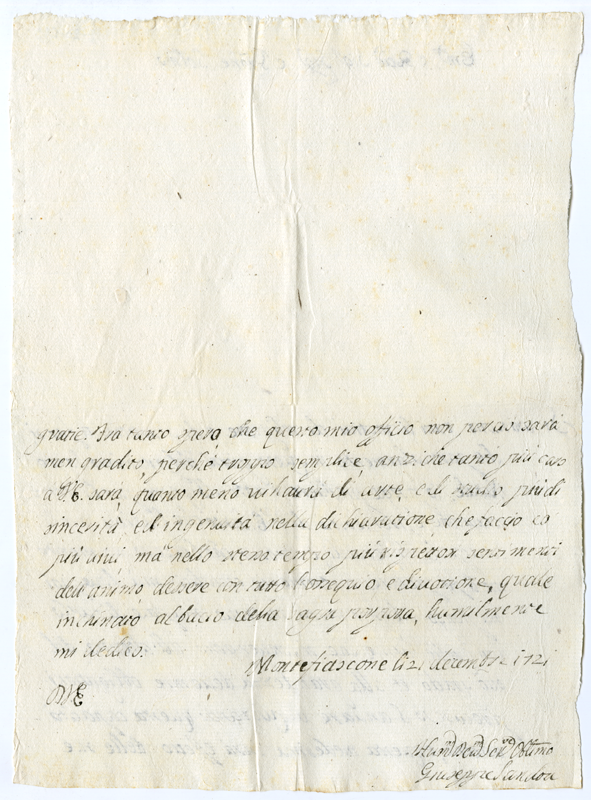 gratie. Fra tanto spero, che questo mio officio non percio sarà
men gradito, perche troppo semplice, anzi che tanto più caro
a V.E. sarà, quanto meno vi haurà di arte, e di studio più di
sincerità e d'ingenuità nella dichiaratione che faccio co
più vivi ma nello stesso tempo più rispettosi sentimenti
dell'animo d'essere con tutto l'ossequio e divotione, quale
inchinato al bacio della sagra porpora, humilmente
mi dedico.
Montefiascone li 21 decembre 1721
D V.E.
Hum.o Dev.o Ser.re Obl.mo
Giuseppe